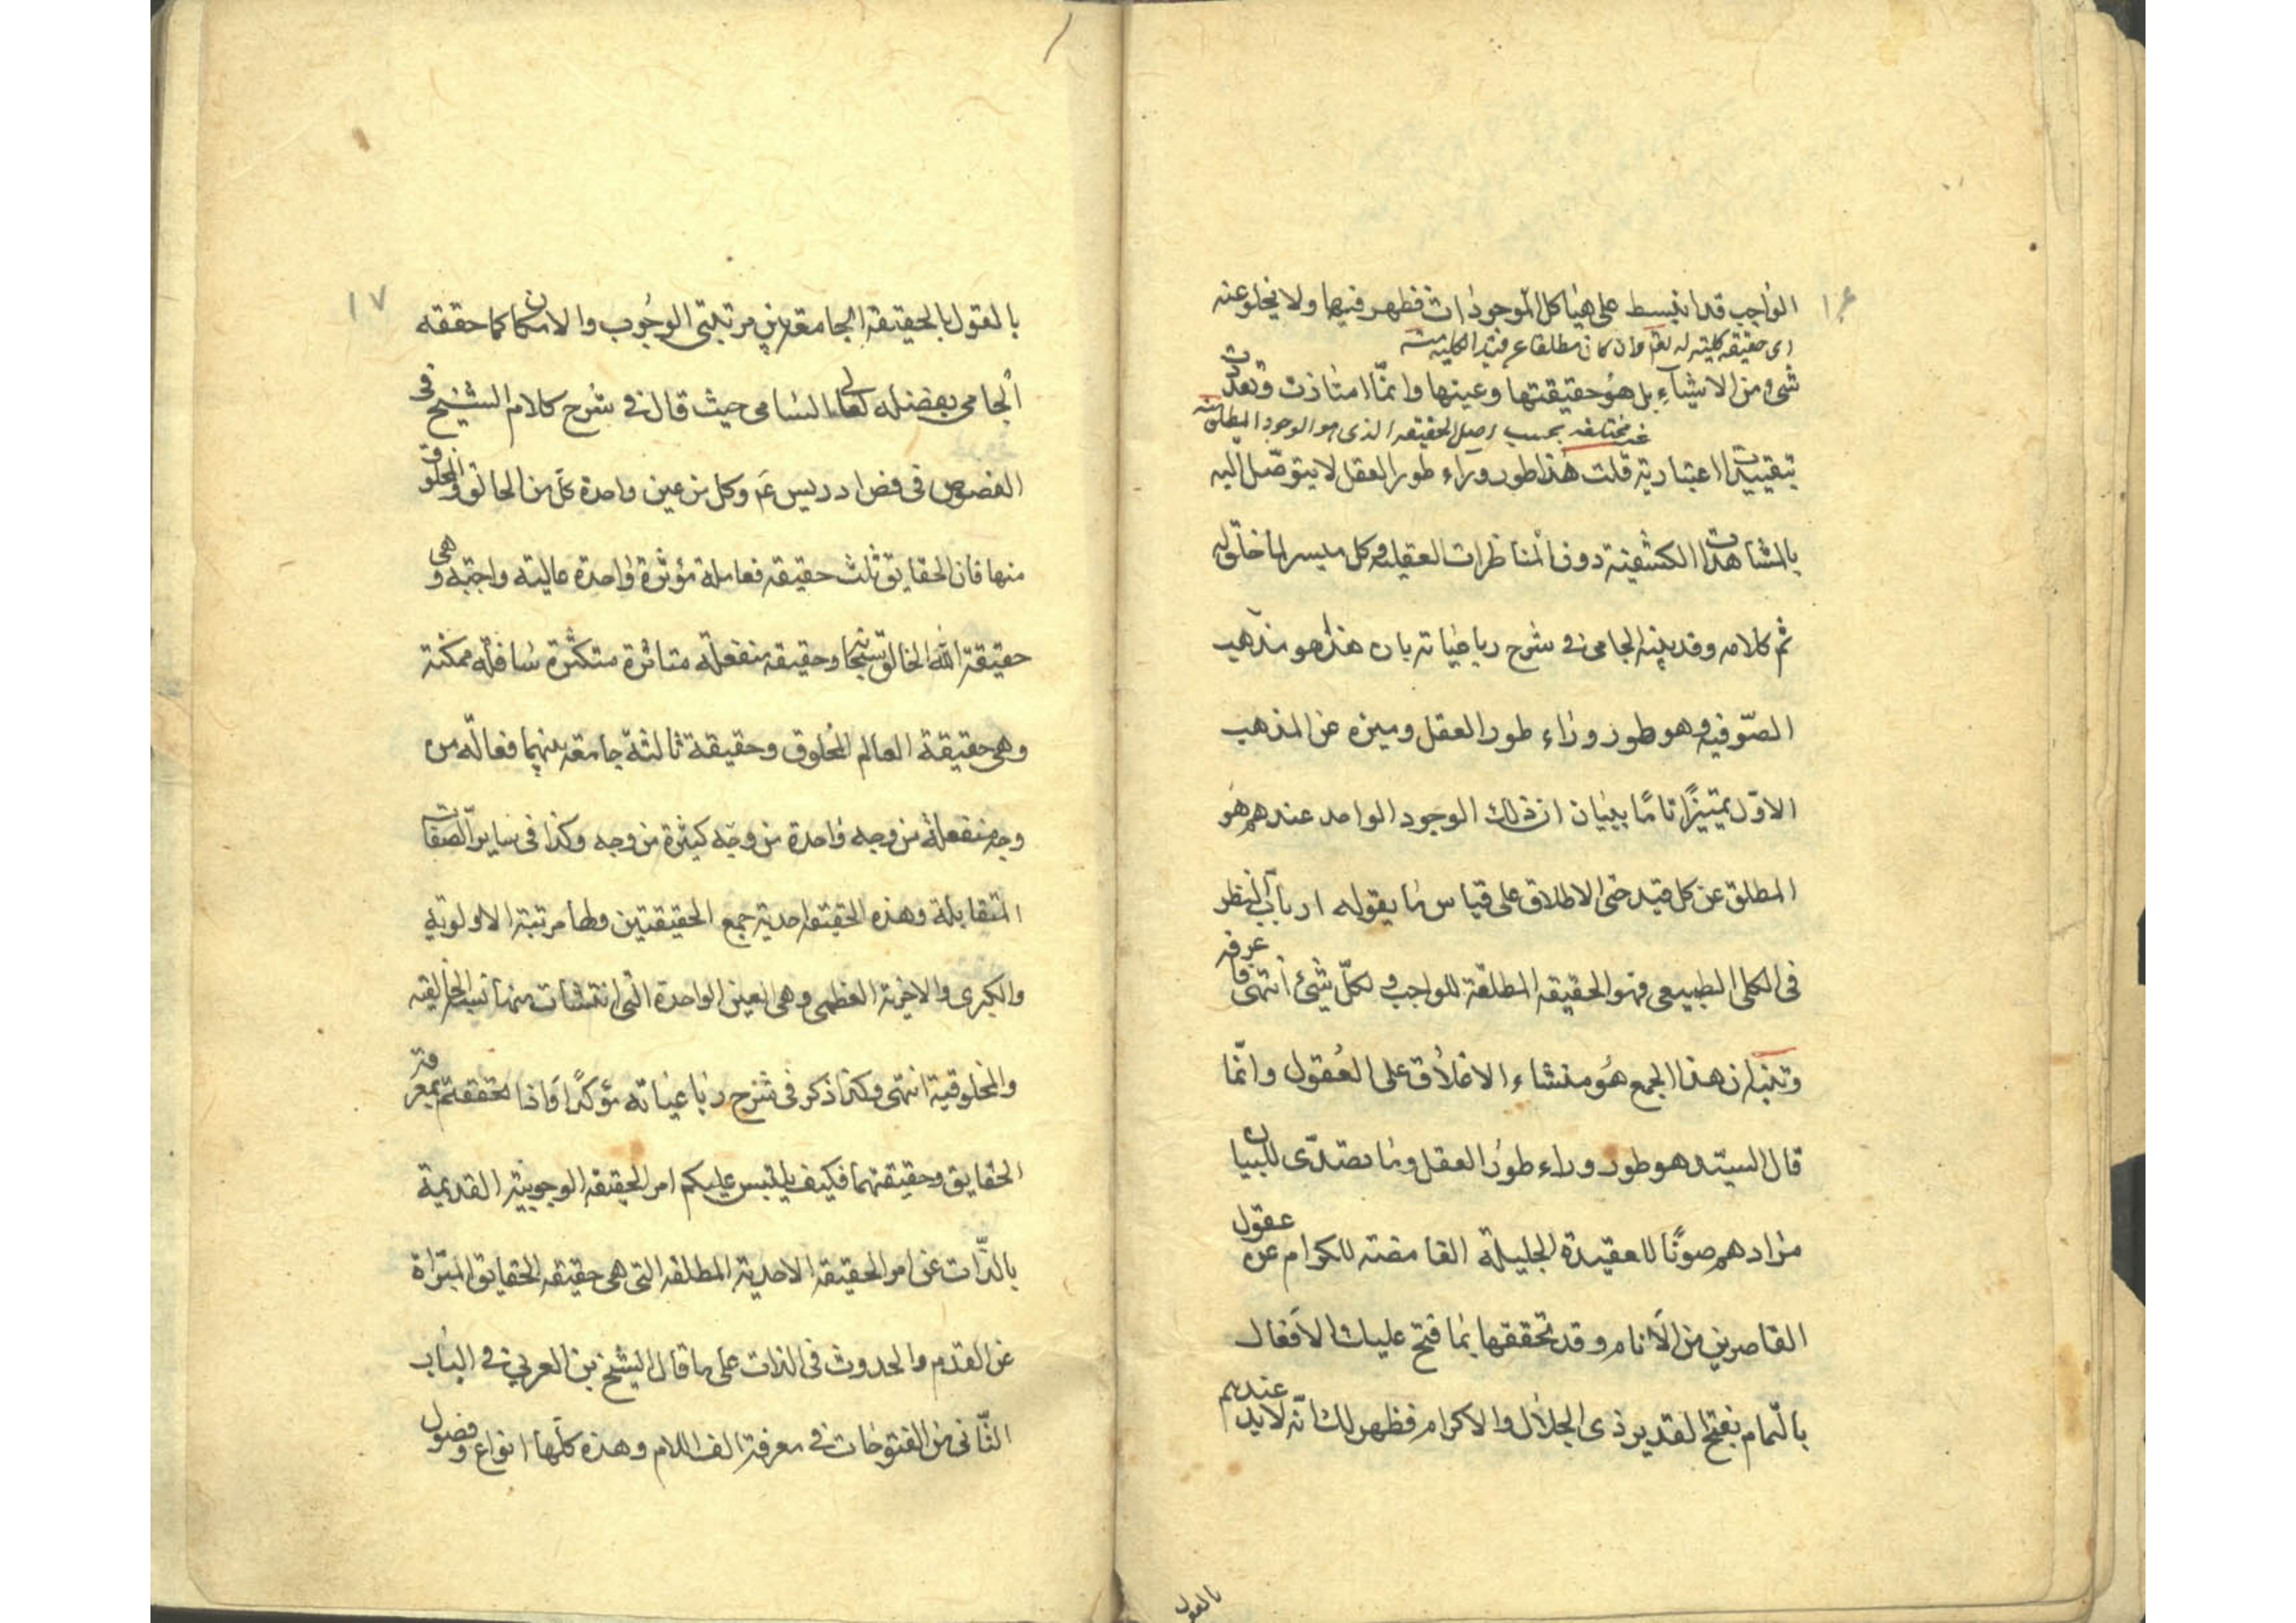 ١٦
الواجب قد انبسط على هياكل الموجودات فظهر فيها ولا يخلو عنه
اى حقيقة كلية له وان كان مطلقا عن قيد الكلية منه
شىء من الاشياء بل هو حقيقتها وعينها وانما امتازت وتعددت
غير مختلفة بحسب اصل الحقيقة الذى هو الوجود المطلق منه
بتقييدات اعتبارية قلت هذا طور وراء طور العقل لا يتوصل اليه
بالمشاهدات الكشفية دون المناظرات العقلية وكل ميسر لما خلق له
تم كلامه وقد بينه الجامى فى شرح رباعياته بان هذا هو مذهب
الصوفيه وهو طور وراء طور العقل وميزه عن المذهب
الاول تمييزا تاما ببيان ان ذلك الوجود الواحد عندهم هو
المطلق عن كل قيد حتى الاطلاق على قياس ما يقوله ارباب النظر
فى الكلى الطبيعى فهو الحقيقة المطلقة للواجب ولكل شىء انتهى فاعرفه
وتنبه ان هذا الجمع هو منشاء الاغلاق على العقول وانما
قال السيد هو طور وراء طور العقل وما تصدى للبيان
مرادهم صونا للعقيدة الجليلة الغامضة للكرام عن عقول
القاصرين من الانام وقد تحققها بما فتح عليك الاقفال
بالتمام بفتح القدير ذى الجلال والاكرام فظهر لك انه لابد عندهم
بالقول
١٧
بالقول بالحقيقة الجامعة بين مرتبتى الوجوب والامكان كما حققه
الجامى بفضله تعالى السامى حيث قال فى شرح كلام الشيخ فى
الفصوص فى فص ادريس عم وكل من عين واحدة كل من الخالق والمخلوق
منها فان الحقايق ثلث حقيقة فعاملة مؤثرة واحدة عالية واجبة وهى
حقيقة الله الخالق سبحانه وحقيقة منفعلة متاثرة متكثرة سافلة ممكنة
وهى حقيقة العالم المخلوق وحقيقة ثالثة جامعة بينهما فعالة من
وجه منفعلة من وجه واحدة من وجه كثيرة من وجه وكذا فى ساير الصفات
المتقابلة وهذه الحقيقة احدية جمع الحقيقتين ولها مرتبة الاولوية
والكبرى والاخرية العظمى وهى العين الواحدة التى انتشات منها نسبة الخالقية
والمخلوقية انتهى وكذا ذكر فى شرح رباعياته مؤكدا فاذا تحققتم بمعرفة
الحقايق وحقيقتها فكيف يلتبس عليكم امر الحقيقة الوجوبية القديمة
بالذات عن امر الحقيقة الاحدية المطلقة التى هى حقيقة الحقايق المبراة
عن القدم والحدوث فى الذات على ما قال الشيخ بن العربى فى الباب
الثانى من الفتوحات فى معرفة الف اللام وهذه كلها انواع وفصول